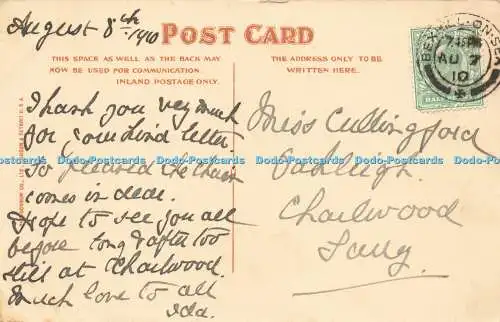 August 8th 1910
POST CARD
THIS SPACE AS WELL AS THE BACK MAY
NOW BE USED FOR COMMUNICATION
INLAND POSTAGE ONLY.
THE ADDRESS ONLY TO BE
WRITTEN HERE.
BEXHILL-ON-SEA
AU 7
10
HALF
Thank you very much
for your kind letter.
So pleased the chain
comes in dear.
Hope to see you all
before long & after too
still at Charlwood.
Much love to all
Ida.
Miss Cullingford
Oakleigh.
Charlwood
Dodo-Postcards Dodo-Postcards Dodo-Postcards Dodo-Postcards Dodo-Postcards Dodo-Postcards